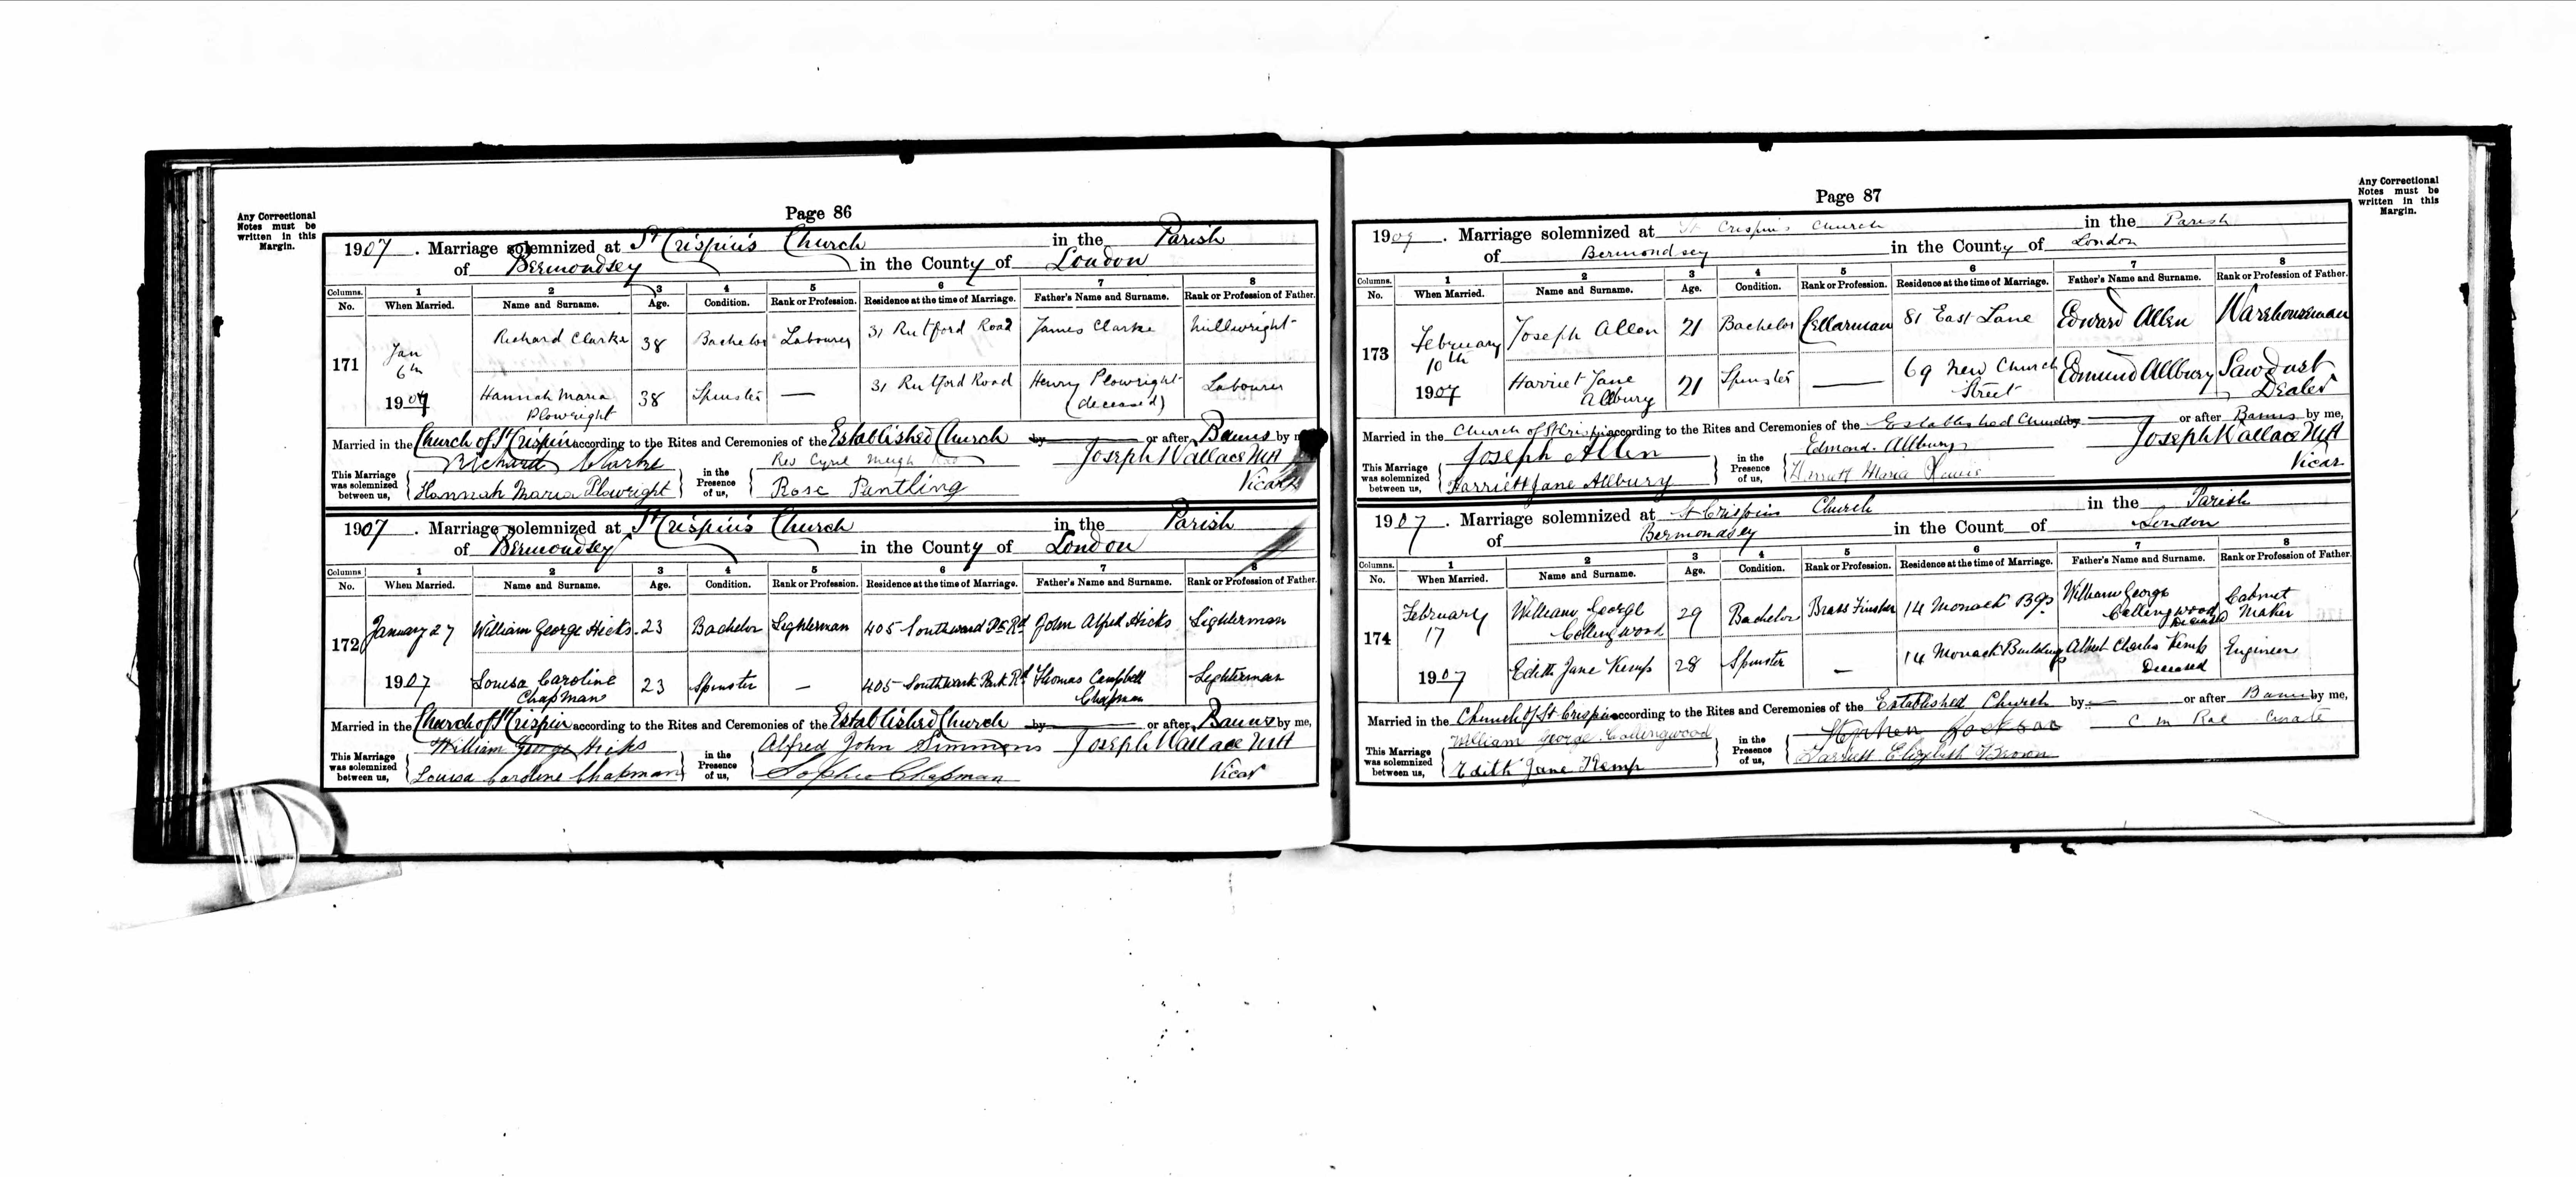 Page 86
Any Correctional
Notes must be
written in this
Margin.
1907. Marriage solemnized at St Crispin's Church in the Parish
of Bermondsey in the County of London
Columns. 1 2 3 4 5 6 7 8
No. When Married. Name and Surname. Age. Condition. Rank or Profession. Residence at the time of Marriage. Father's Name and Surname. Rank or Profession of Father.
171 Jan 6th 1907
Richard Clarke 38 Bachelor Labourer 31 Rutford Road James Clarke Millwright
Hannah Maria Plowright 38 Spinster — 31 Rutford Road Henry Plowright (deceased) Labourer
Married in the Church of St Crispin according to the Rites and Ceremonies of the Established Church by or after Banns by me,
This Marriage was solemnized between us, Richard Clarke Hannah Maria Plowright
in the Presence of us, Rev Cyril Rose Pentling
Joseph Wallace MA
Vicar
1907. Marriage solemnized at St Crispin's Church in the Parish
of Bermondsey in the County of London
Columns 1 2 3 4 5 6 7 8
No. When Married. Name and Surname. Age. Condition. Rank or Profession. Residence at the time of Marriage. Father's Name and Surname. Rank or Profession of Father.
172 January 27 1907
William George Hicks 23 Bachelor Lighterman 405 Southward Pk Rd John Alfred Hicks Lighterman
Louisa Caroline Chapman 23 Spinster — 405 Southwark Park Rd Thomas Campbell Chapman Lighterman
Married in the Church of St Crispin according to the Rites and Ceremonies of the Established Church by or after Banns by me,
This Marriage was solemnized between us, William George Hicks Louisa Caroline Chapman
in the Presence of us, Alfred John Simmons Sophie Chapman
Joseph Wallace MA
Vicar
Page 87
Any Correctional
Notes must be
written in this
Margin.
1907. Marriage solemnized at St Crispin's Church in the Parish
of Bermondsey in the County of London
Columns. 1 2 3 4 5 6 7 8
No. When Married. Name and Surname. Age. Condition. Rank or Profession. Residence at the time of Marriage. Father's Name and Surname. Rank or Profession of Father.
173 February 10th 1907
Joseph Allen 21 Bachelor Cellarman 81 East Lane Edward Allen Warehouseman
Harriet Jane Allbury 21 Spinster — 69 New Church Street Edmund Allbury Sawdust Dealer
Married in the Church of St Crispin according to the Rites and Ceremonies of the Established Church by or after Banns by me,
This Marriage was solemnized between us, Joseph Allen Harriett Jane Allbury
in the Presence of us, Edmond. Allbury Harriett Maria
Joseph Wallace MA
Vicar
1907. Marriage solemnized at St Crispins Church in the Parish
of Bermondsey in the Count of London
Columns. 1 2 3 4 5 6 7 8
No. When Married. Name and Surname. Age. Condition. Rank or Profession. Residence at the time of Marriage. Father's Name and Surname. Rank or Profession of Father.
174 February 17 1907
William George Collingwood 29 Bachelor Brass Finisher 14 Monack Bgs William George Collingwood Deceased Cabinet Maker
Edith Jane Kemp 28 Spinster — 14 Monack Buildings Albert Charles Kemp Deceased Engineer
Married in the Church of St Crispin according to the Rites and Ceremonies of the Established Church by — or after Banns by me,
This Marriage was solemnized between us, William George Collingwood Edith Jane Kemp
in the Presence of us, Stephen Harriett Elizabeth Brown
C M Rae Curate